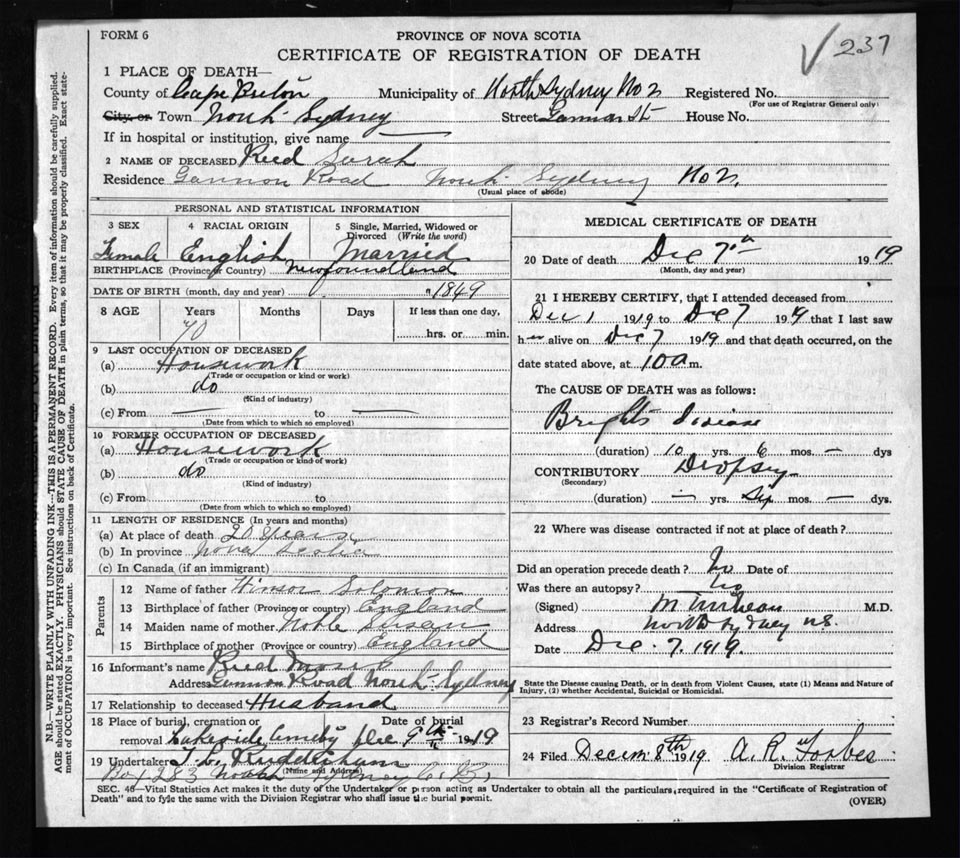 FORM 6
PROVINCE OF NOVA SCOTIA
CERTIFICATE OF REGISTRATION OF DEATH
237
1 PLACE OF DEATH—
County of Cape Breton Municipality of North Sydney No 2 Registered No.
(For use of Registrar General only)
City or Town North Sydney Street Gannon St House No.
If in hospital or institution, give name —
2 NAME OF DECEASED Reed Sarah
Residence Gannon Road North Sydney No 2.
(Usual place of abode)
PERSONAL AND STATISTICAL INFORMATION
3 SEX 4 RACIAL ORIGIN 5 Single, Married, Widowed or Divorced (Write the word)
Female English Married
BIRTHPLACE (Province or Country) Newfoundland
DATE OF BIRTH (month, day and year) 1849
8 AGE Years Months Days If less than one day,
70 hrs. or min.
9 LAST OCCUPATION OF DECEASED
(a) Housework
(Trade or occupation or kind or work)
(b) do
(Kind of industry)
(c) From — to —
(Date from which to which so employed)
10 FORMER OCCUPATION OF DECEASED
(a) Housework
(Trade or occupation or kind of work)
(b) do
(Kind of industry)
(c) From to
(Date from which to which so employed)
11 LENGTH OF RESIDENCE (In years and months)
(a) At place of death 20 years
(b) In province Nova Scotia
(c) In Canada (if an immigrant)
Parents
12 Name of father Solomon
13 Birthplace of father (Province or country) England
14 Maiden name of mother Noble Susan
15 Birthplace of mother (Province or country) England
16 Informant's name Reed Moses
Address Gannon Road North Sydney
17 Relationship to deceased Husband
18 Place of burial, cremation or removal Lakeside Date of burial Dec 9th 1919
19 Undertaker
(Name and Address)
Box 283 North Sydney C.B.
MEDICAL CERTIFICATE OF DEATH
20 Date of death Dec 7th 1919
(Month, day and year)
21 I HEREBY CERTIFY, that I attended deceased from
Dec 1 1919 to Dec 7 1919 that I last saw
h alive on Dec 7 1919 and that death occurred, on the
date stated above, at 10 a m.
The CAUSE OF DEATH was as follows:
Brights Disease
(duration) 10 yrs. 6 mos. — dys
CONTRIBUTORY Dropsy
(Secondary)
(duration) — yrs. Six mos. — dys.
22 Where was disease contracted if not at place of death?
Did an operation precede death? No Date of
Was there an autopsy? No
(Signed) M.D.
Address North Sydney N.S.
Date Dec. 7. 1919.
State the Disease causing Death, or in death from Violent Causes, state (1) Means and Nature of
Injury, (2) whether Accidental, Suicidal or Homicidal.
23 Registrar's Record Number
24 Filed Decem 8th 1919 A. R. Forbes
Division Registrar
SEC. 48—Vital Statistics Act makes it the duty of the Undertaker or person acting as Undertaker to obtain all the particulars required in the "Certificate of Registration of
Death" and to fyle the same with the Division Registrar who shall issue the burial permit.
(OVER)
N.B.—WRITE PLAINLY WITH UNFADING INK—THIS IS A PERMANENT RECORD. Every item of information should be carefully supplied.
AGE should be stated EXACTLY. PHYSICIANS should STATE CAUSE OF DEATH in plain terms, so that it may be properly classified. Exact statement
of OCCUPATION is very important. See instructions on back of Certificate.